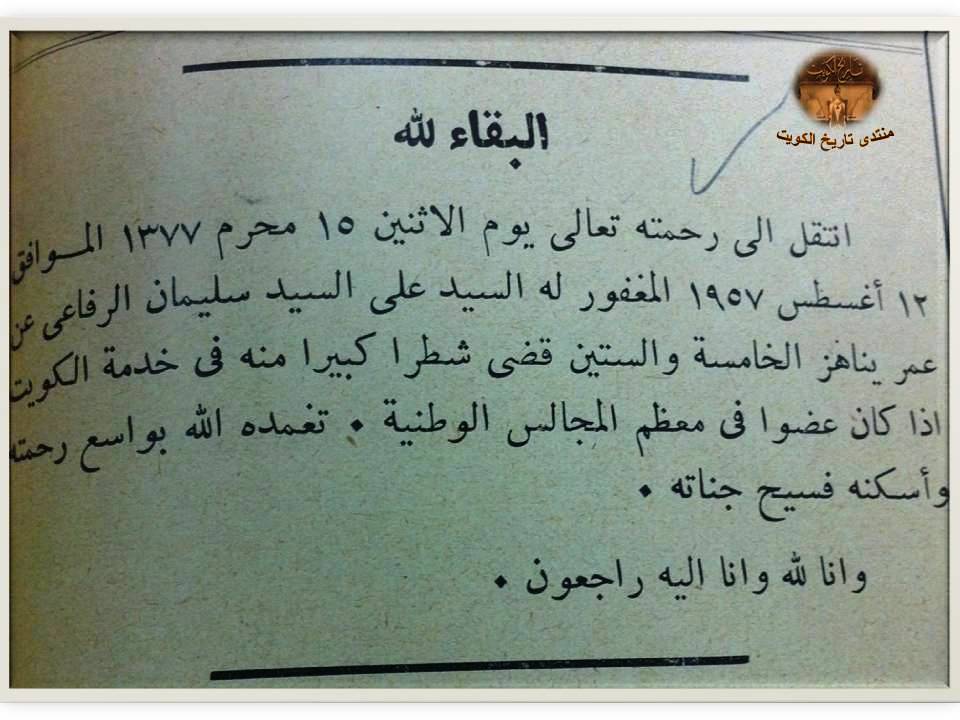 تاريخ الكويت
منتدى تاريخ الكويت
البقاء لله
انتقل الى رحمته تعالى يوم الاثنين ١٥ محرم ١٣٧٧ المـوافق
١٢ أغسطس ١٩٥٧ المغفور له السيد على السيد سليمان الرفاعى عن
عمر يناهز الخامسة والستين قضى شطرا كبيرا منه فى خدمة الكويت
اذا كان عضوا فى معظم المجالس الوطنية • تغمده الله بواسع رحمته
وأسكنه فسيح جناته •
وانا لله وانا اليه راجعون •